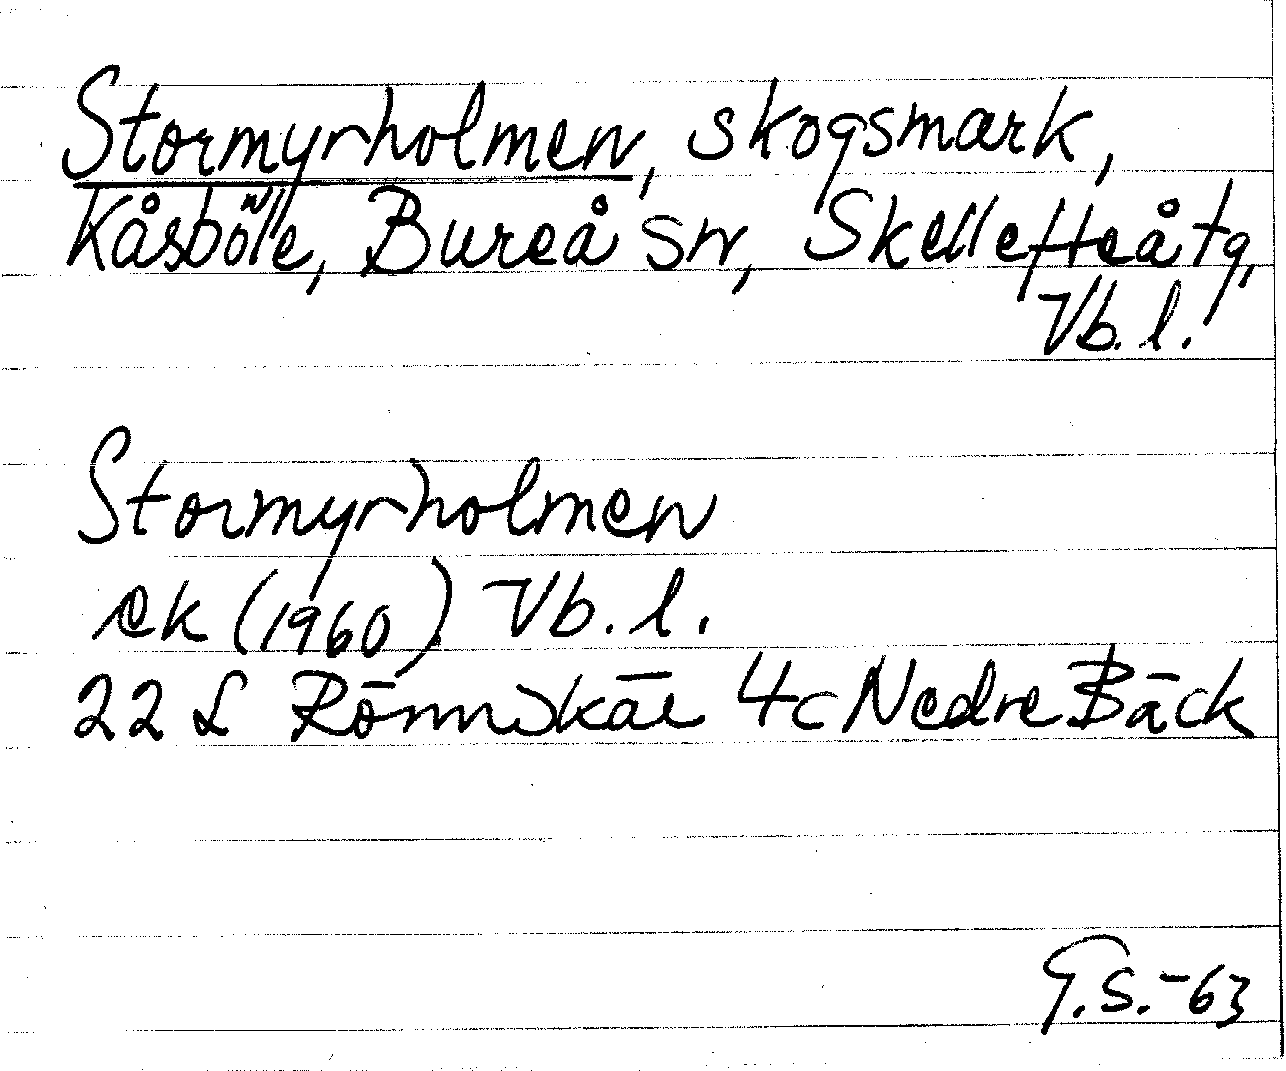 Stormyrholmen, skogsmark,
Kåsböle, Bureå sn, Skellefteå tg,
Vb. l.
Stormyrholmen
ek (1960) Vb. l.
22 L Rönnskär 4c Nedre Bäck
G.S.-63